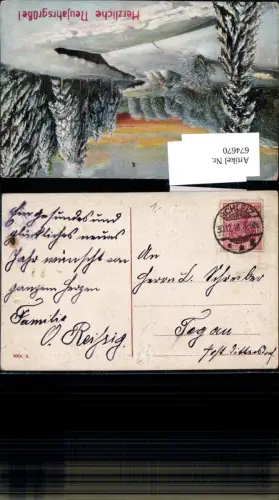 Herzliche Neujahrsgrüße!
Artikel Nr.
674670
1.-
Ein gesundes und
glückliches neues
Jahr wünscht von
ganzem Herzen
Familie
O. Reissig.
An
Herrn L. Schreiber
Tegau
Post Dittersdorf